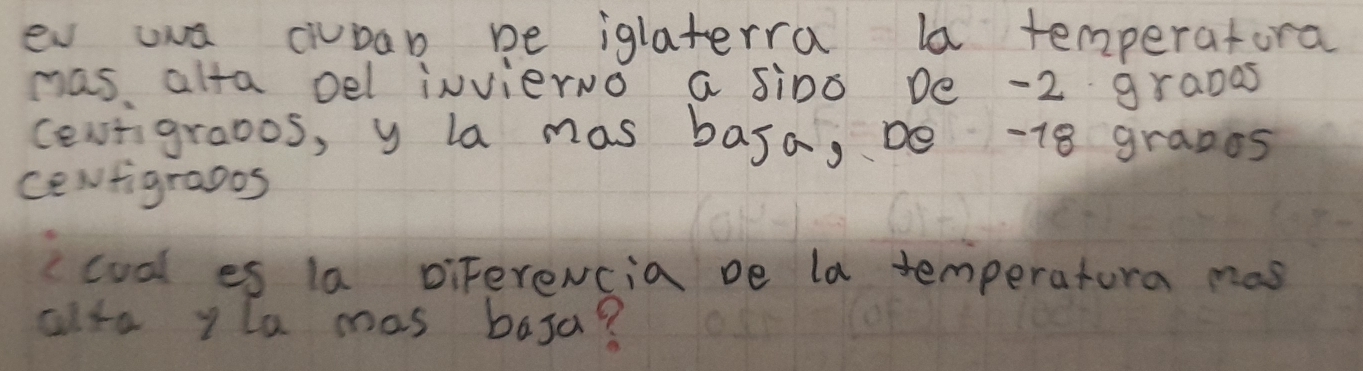 en una ciudad de iglaterra la temperatura
mas alta del invierno a sido de -2 grados
centigrados, y la mas baja, de -18 grados
centigrados
¿cual es la diferencia de la temperatura mas
alta y la mas baja?